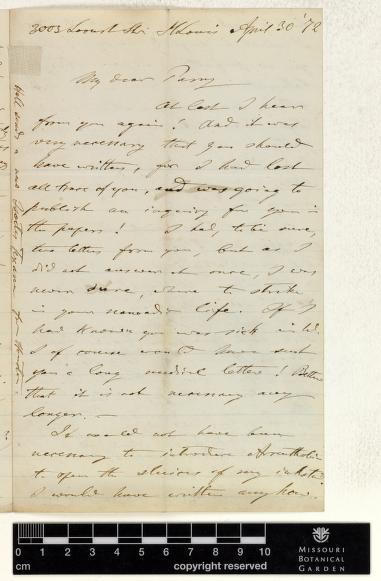 3003 Locust Str. St Louis April 30 '72
My dear Parry
At last I hear
from you again! And it was
very necessary that you should
have written, for I had lost
all trace of you, and was going to
publish an inquiry for you in
the papers! I had, to be sure,
two letters from you, but as I
did not answer at once, I was
never sure, where to strike
in your nomadic life. If I
had known you was sick
I of course would have sent
you a long medical letter! Better
that it is not necessary any
longer. —
It would not have been
necessary to introduce
to open the sluices of my
I would have written anyhow.
0 1 2 3 4 5 6 7 8 9 10
cm copyright reserved
MISSOURI
BOTANICAL
GARDEN